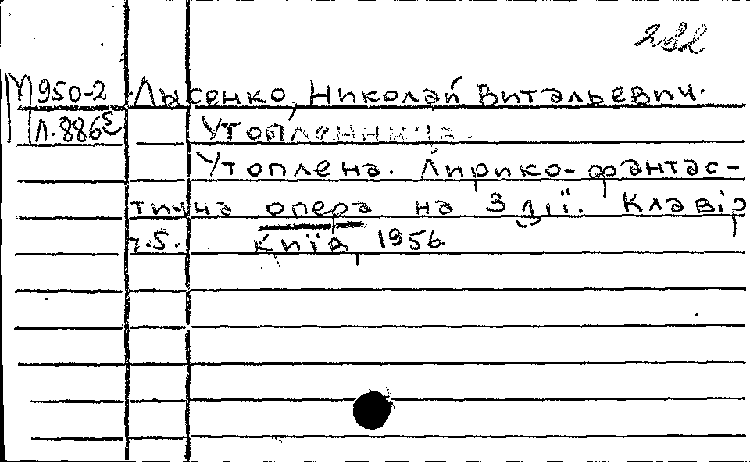 М950-2 Лысенко, Николай Витальевич.
Л.886 Утопленница.
Утоплена. Лирико-фантас-
тична опера на 3 дії. Клавір
т.5. Київ, 1956